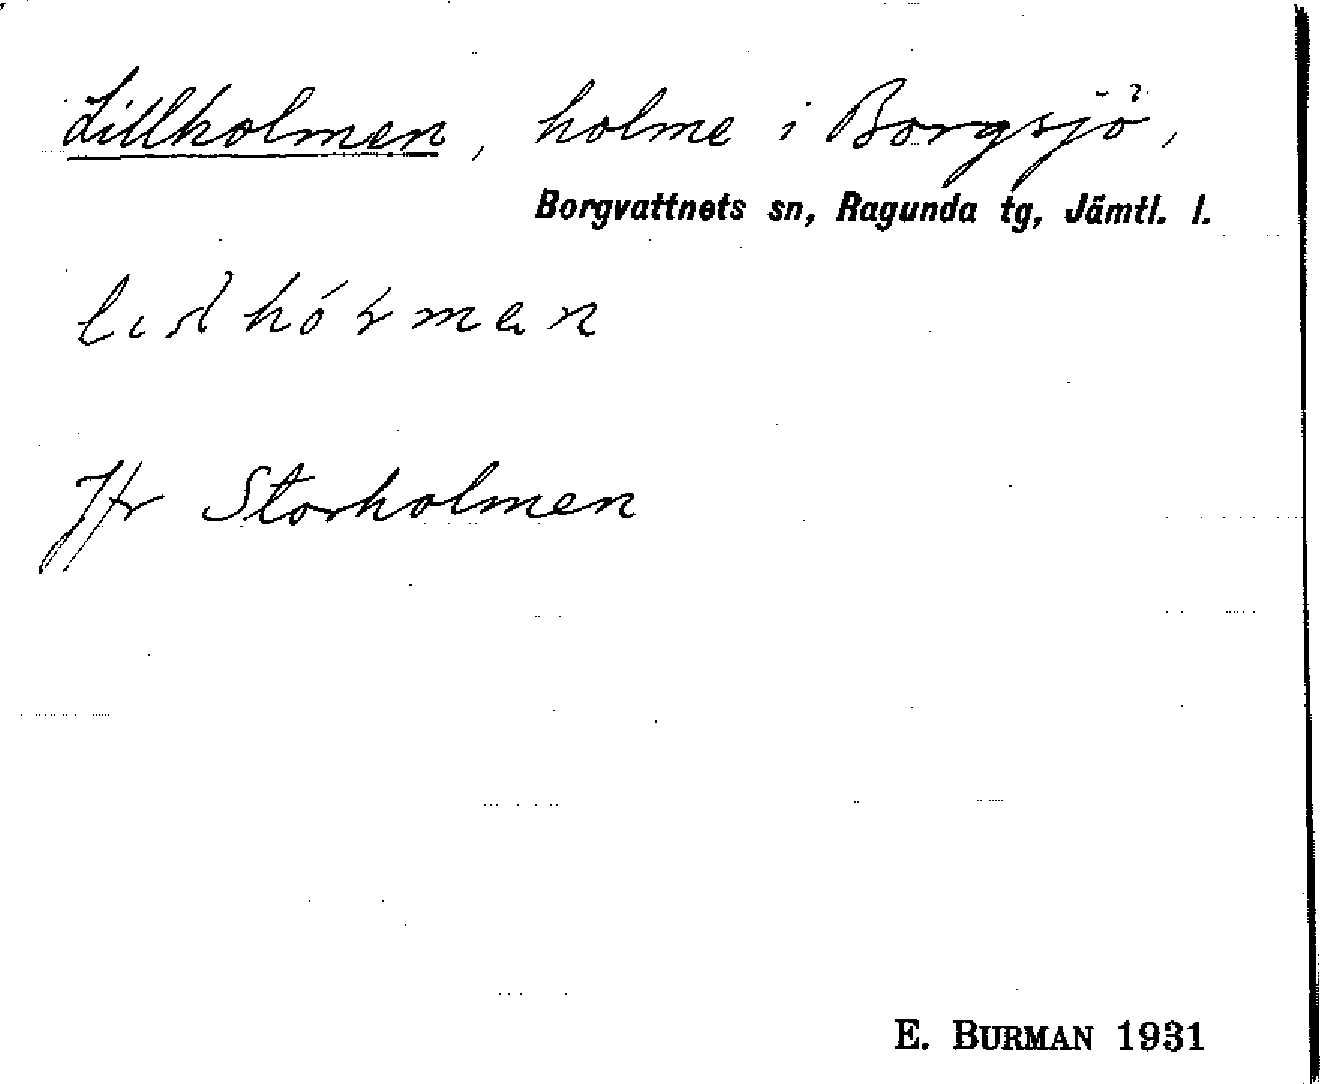 Lillholmen, holme i Borgsjö,
Borgvattnets sn, Ragunda tg, Jämtl. l.
Jfr Storholmen
E. BURMAN 1931